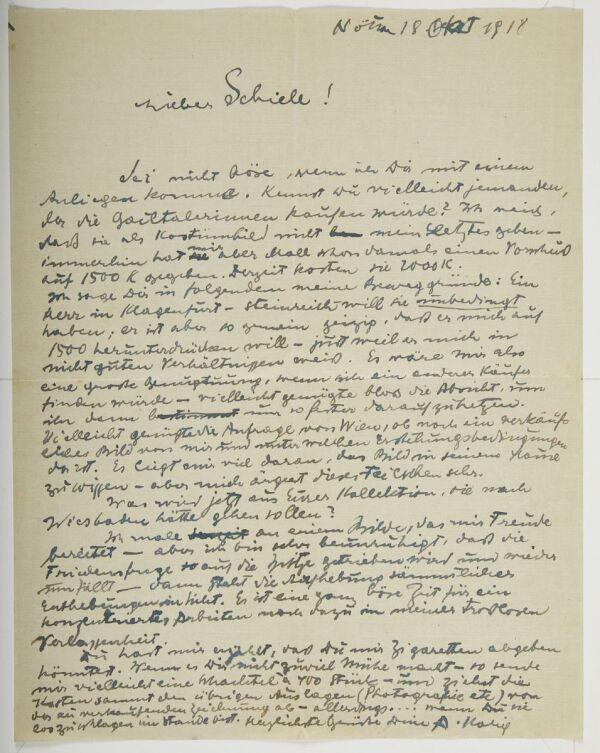 18 Okt 1918
Lieber Schiele!
Sei nicht böse, wenn ich Dir mit einem
Anliegen komme. Kennst Du vielleicht jemanden,
der die Gailtalerinnen kaufen würde? Ich weiß,
daß sie als Kostümbild nicht mein Letztes geben –
immerhin hat mir aber Moll schon damals einen Vorschuß
auf 1500 K gegeben. Derzeit kosten sie 2000 K.
Ich sage Dir in folgendem meine Beweggründe: Ein
Herr in Klagenfurt – steinreich will sie unbedingt
haben; er ist aber so gemein geizig, daß er mich auf
1500 herunterdrücken will – just weil er mich in
nicht guten Verhältnissen weiß. Es wäre mir also
eine große Genugtuung, wenn sich ein anderer Käufer
finden würde – vielleicht genügte bloß die Absicht, um
ihn dann nur so fester darauf zu hetzen.
Vielleicht genügte die Anfrage von Wien, ob noch ein verkäuf-
liches Bild von mir und unter welchen Erstehungsbedingungen
da ist. Es liegt mir viel daran, das Bild in seinem Hause
zu wissen – aber mich ärgert dieses Feilschen sehr.
Was wird jetzt aus Eurer Kollektion, die nach
Wiesbaden hätte gehen sollen?
Ich male an einem Bilde, das mir Freude
bereitet – aber ich bin sehr beunruhigt, daß die
Friedensfrage so auf die Spitze getrieben wird und wieder
umfällt – dann steht die Aufhebung sämmtlicher
Enthebungen in Sicht. Es ist eine ganz böse Zeit für ein
konzentriertes Arbeiten noch dazu in meiner trostlosen
Verlassenheit.
Du hast mir erzählt, daß Du mir Zigaretten abgeben
könntest. Wenn es Dir nicht zuviel Mühe macht – so sende
mir vielleicht eine Schachtel à 100 Stück – und ziehst die
Kosten sammt den übrigen Auslagen (Photografie etc) von
der zu verkaufenden Zeichnung ab – allerdings.... wenn Du sie
loszuschlagen im Stande bist. Herzlichste Grüße Dein A.